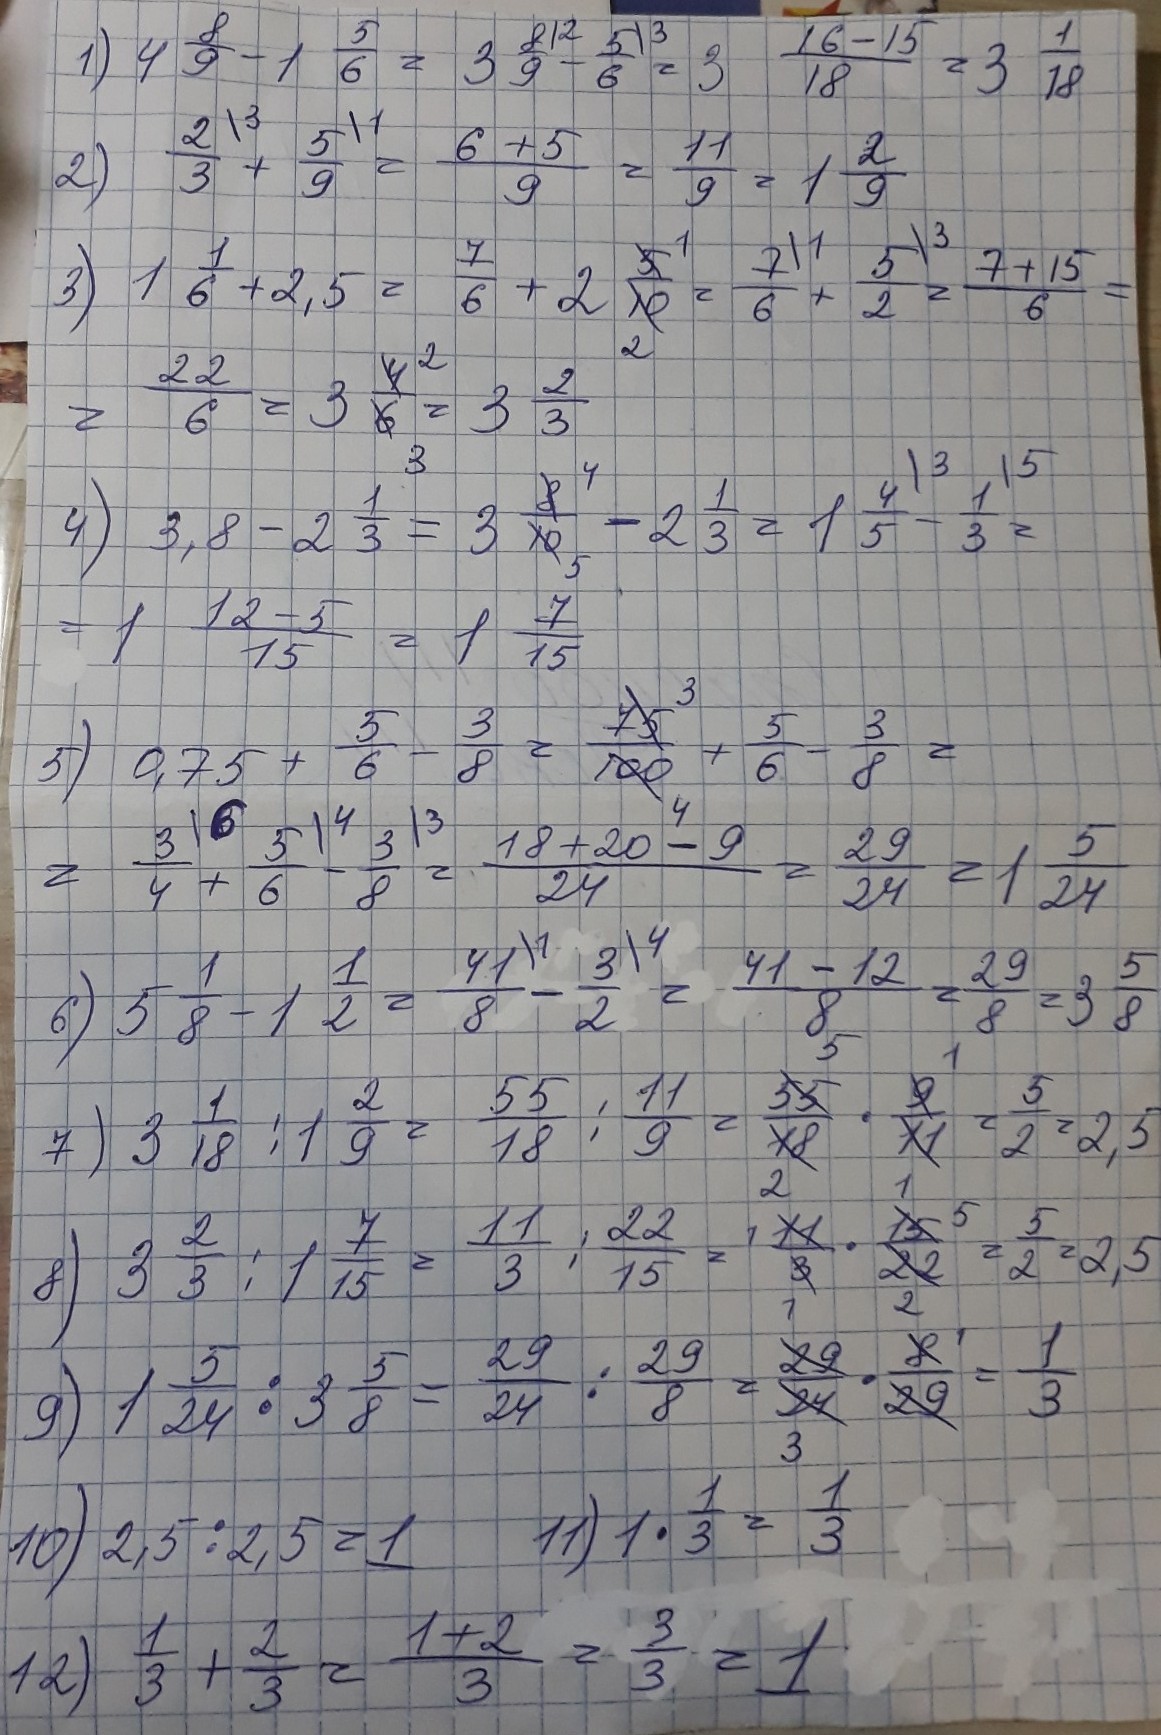 1) 4 8/9 - 1 5/6 = 3 8\2/9 - 5\3/6 = 3 16-15/18 = 3 1/18
2) 2\3/3 + 5\1/9 = 6+5/9 = 11/9 = 1 2/9
3) 1 1/6 + 2,5 = 7/6 + 2 5 1/10 2 = 7\1/6 + 5\3/2 = 7+15/6 =
= 22/6 = 3 4 2/6 3 = 3 2/3
4) 3,8 - 2 1/3 = 3 8 4/10 5 - 2 1/3 = 1 4\3/5 - 1\5/3 =
= 1 12-5/15 = 1 7/15
5) 0,75 + 5/6 - 3/8 = 75 3/100 4 + 5/6 - 3/8 =
= 3\6/4 + 5\4/6 - 3\3/8 = 18+20-9/24 = 29/24 = 1 5/24
6) 5 1/8 - 1 1/2 = 41\1/8 - 3\4/2 = 41-12/8 = 29/8 = 3 5/8
7) 3 1/18 : 1 2/9 = 55/18 : 11/9 = 55 5/18 2 · 9 1/11 1 = 5/2 = 2,5
8) 3 2/3 : 1 7/15 = 11/3 : 22/15 = 1 11/3 1 · 15 5/22 2 = 5/2 = 2,5
9) 1 5/24 : 3 5/8 = 29/24 : 29/8 = 29/24 3 · 8 1/29 = 1/3
10) 2,5 : 2,5 = 1 11) 1 · 1/3 = 1/3
12) 1/3 + 2/3 = 1+2/3 = 3/3 = 1